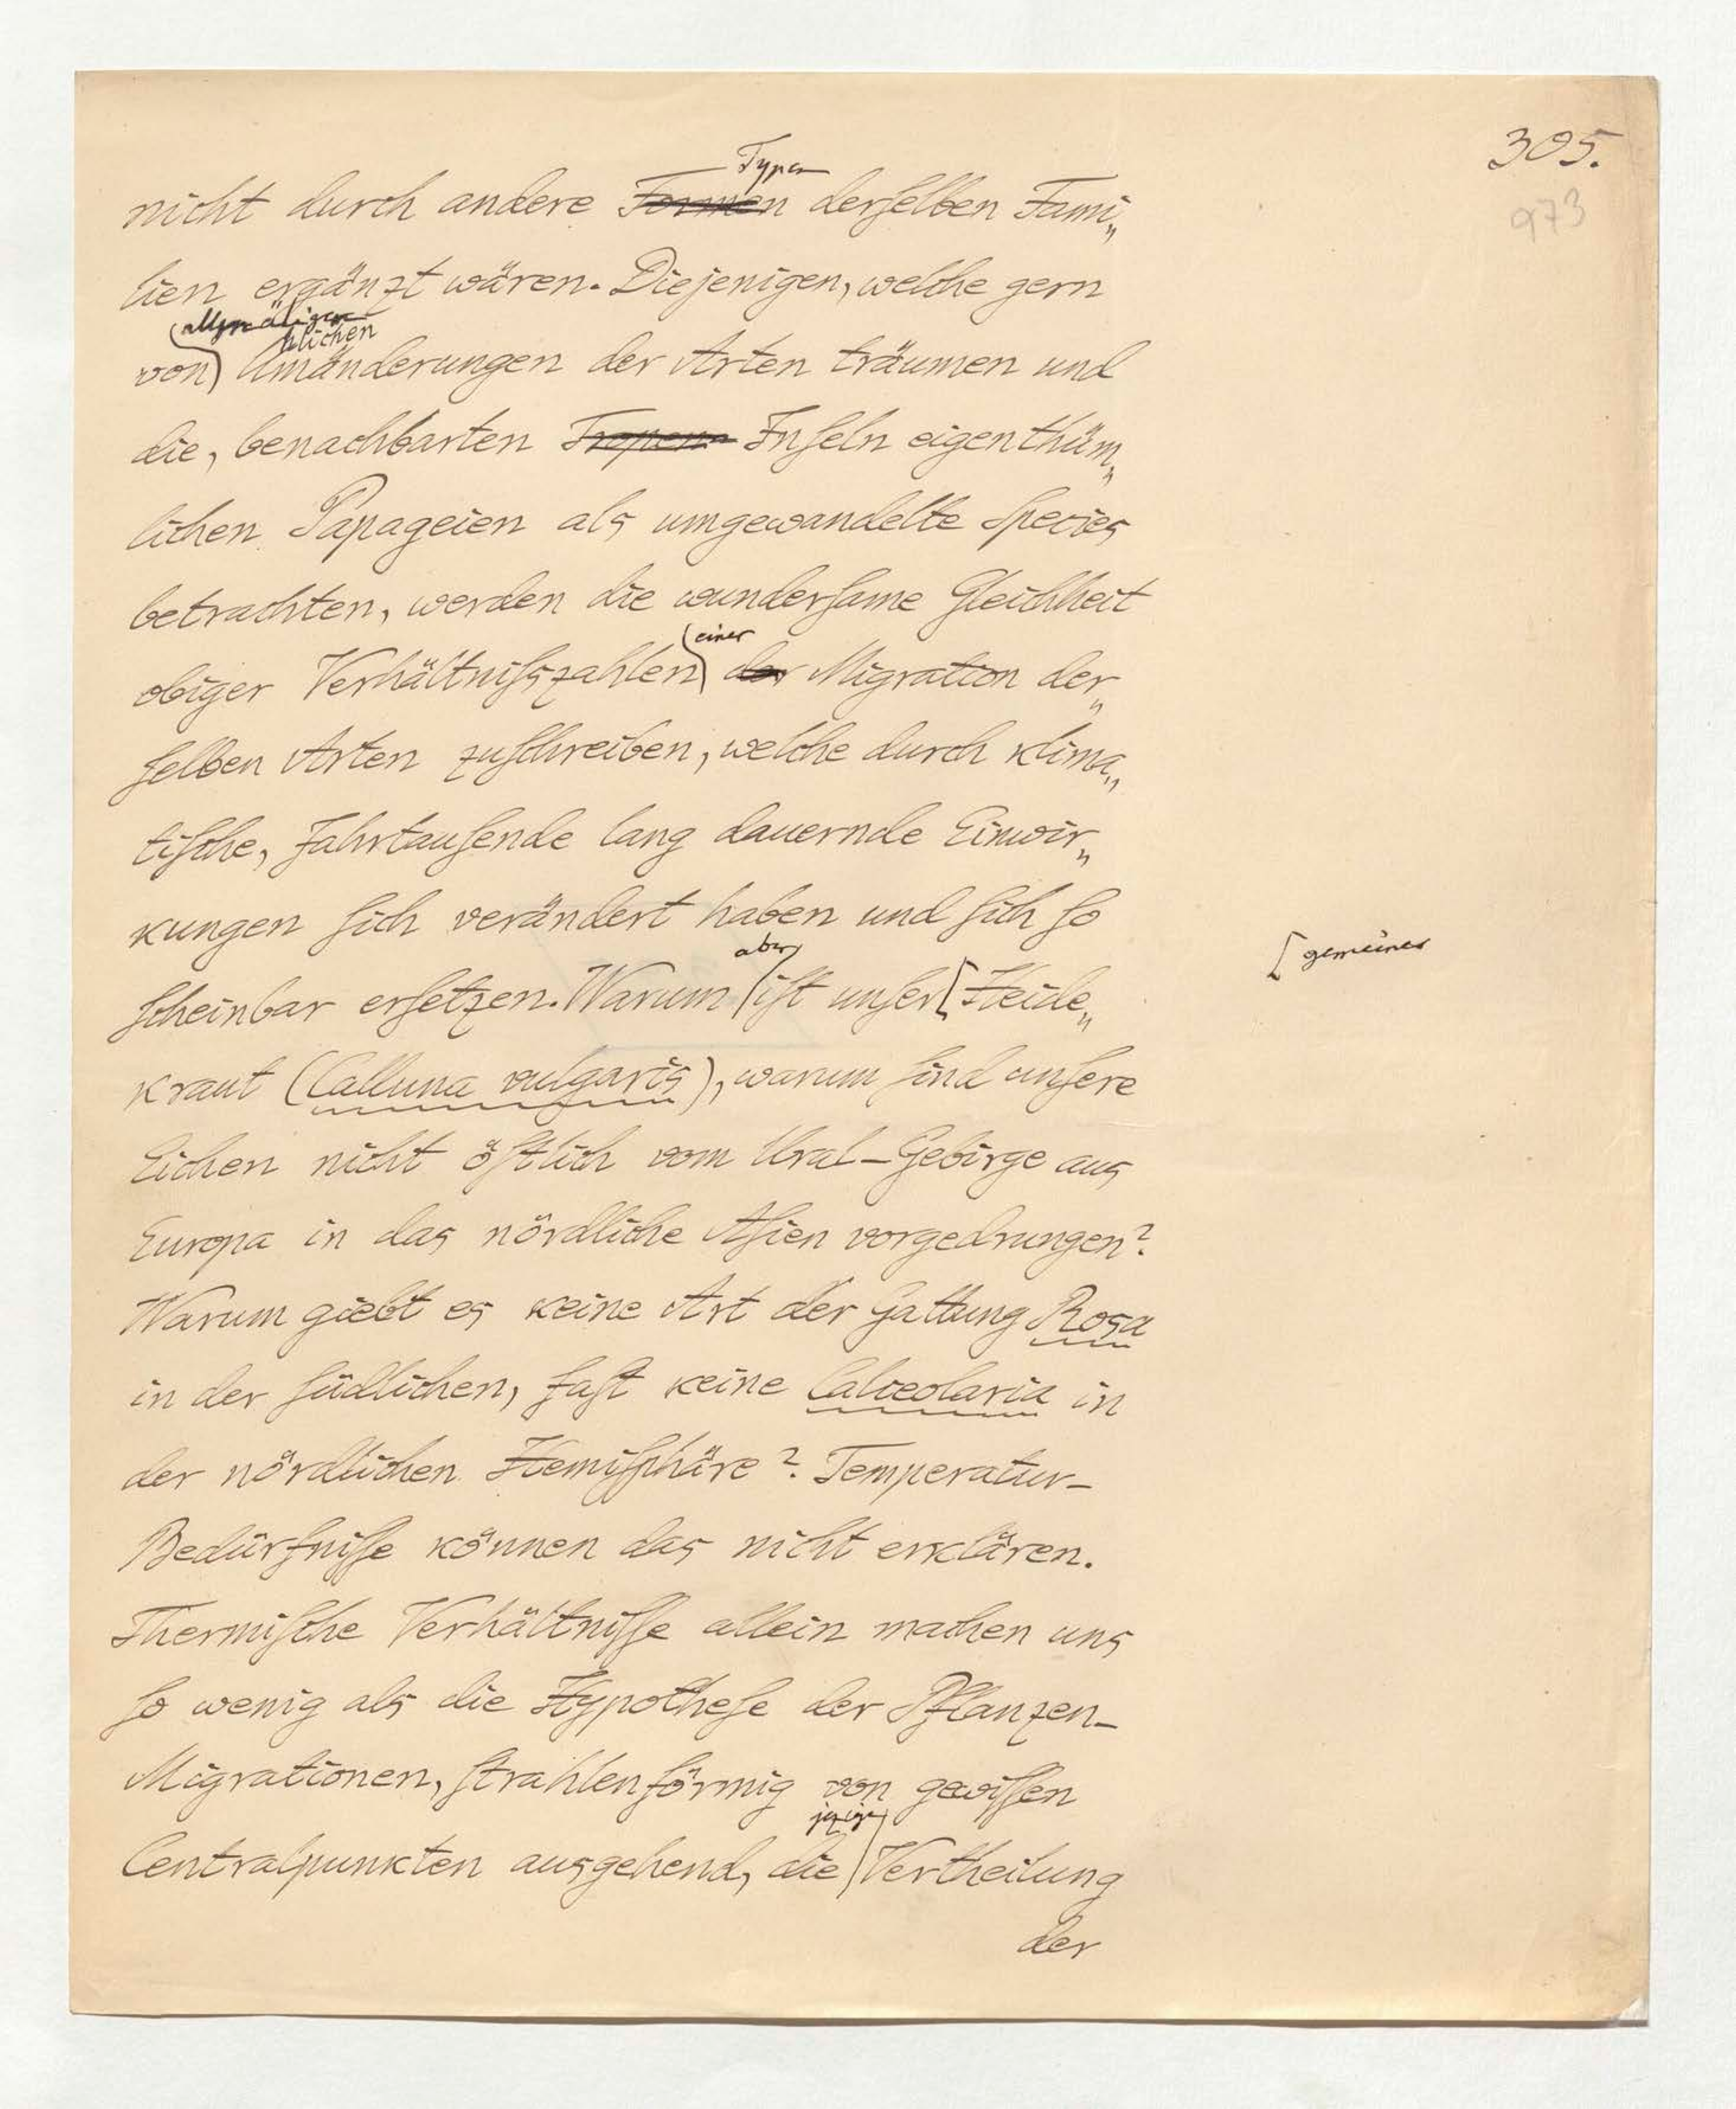 305.
973
Typen
nicht durch andere Formen derſelben Fami„
lien ergänzt wären. Diejenigen, welche gern
allmäligen
hlichen
von Umänderungen der Arten träumen und
die, benachbarten Tropen Inſeln eigenthüm„
lichen Papageien als umgewandelte Species
betrachten, werden die wunderſame Gleichheit
einer
obiger Verhältniſszahlen der Migration der„
ſelben Arten zuſchreiben, welche durch klima„
tiſche, Jahrtauſende lang dauernde Einwir„
kungen ſich verändert haben und ſich ſo
aber
ſcheinbar erſetzen. Warum iſt unſer Heide„
gemeines
kraut (Calluna vulgaris), warum ſind unſere
Eichen nicht öſtlich vom Ural-Gebirge aus
Europa in das nördliche Aſien vorgedrungen?
Warum giebt es keine Art der Gattung Rosa
in der ſüdlichen, faſt keine Calceolaria in
der nördlichen Hemiſphäre? Temperatur-
Bedürfniſſe können das nicht erklären.
Thermiſche Verhältniſſe allein machen uns
ſo wenig als die Hypotheſe der Pflanzen-
Migrationen, ſtrahlenförmig von gewiſſen
jezige
Centralpunkten ausgehend, die Vertheilung
der